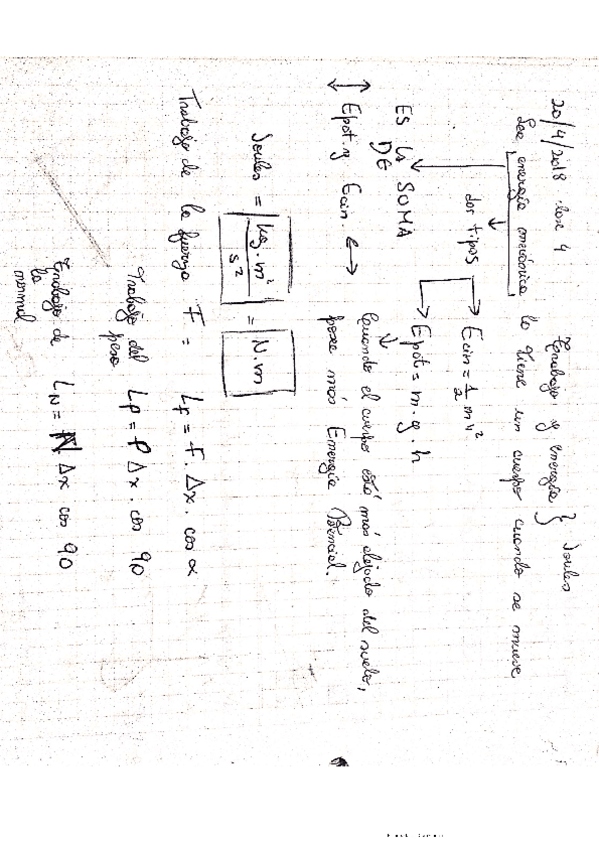 20/4/2018 clase 4 Trabajo y energía } Joules
La energía mecánica la tiene un cuerpo cuando se mueve
dos tipos
Ecin = 1/2 m v²
Epot = m . g . h
ES LA SOMA
DE
Epot. y Ecin.
Cuando el cuerpo está más alejado del suelo,
posee más Energía Potencial.
Joules = kg . m² / s² = N.m
Trabajo de la fuerza F = LF = F . Δx . cos α
Trabajo del peso LP = P Δx . cos 90
Trabajo de la normal LN = N Δx cos 90